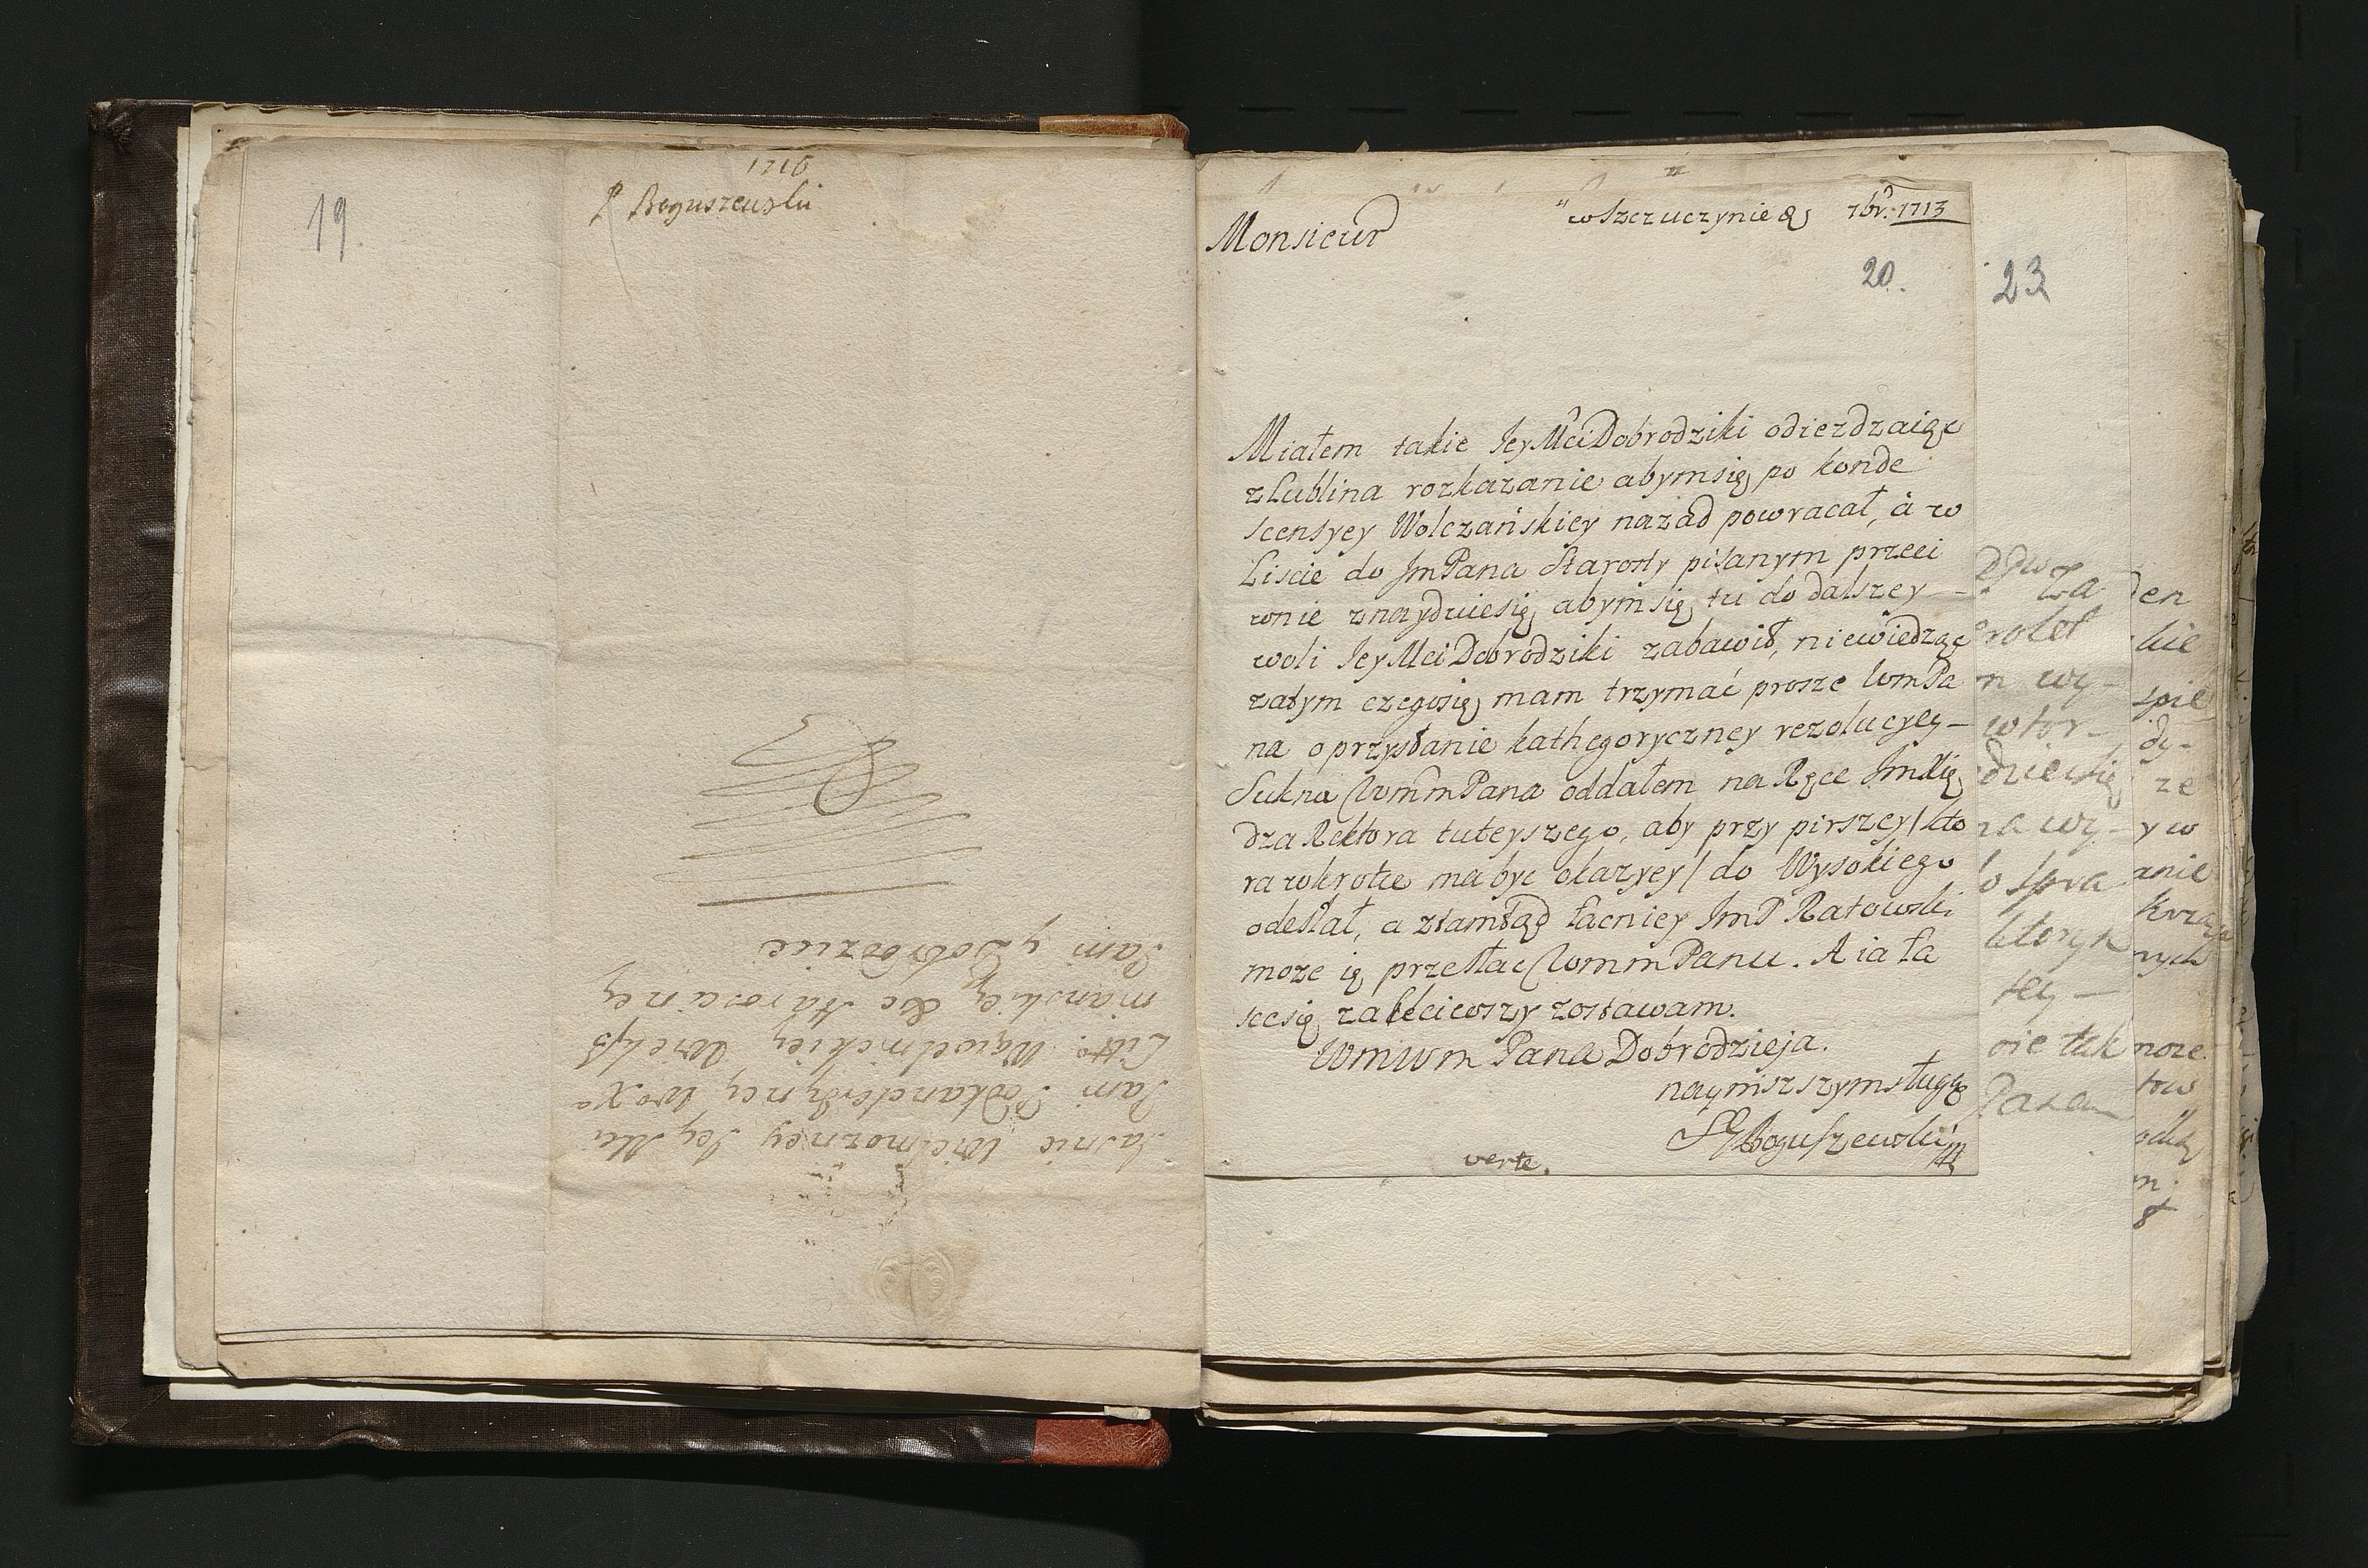 1716
P Boguszewski
19.
Jasnie Wielmozney Jey Mci
Pani Podkanclerzyney WoXa
Litto. Wawelnickiey Wielß
mianskiey &c Starosciney
Pani y Dobrodzice
Monsieur
w Szczuczynie 7br. 1713
20.
23
Miałem takie Jey Mci Dobrodziki odiezdzaiąc
z Lublina rozkazanie abym się po konde
scensyey Wolczańskiey nazad powracał, á w
Liscie do Jm Pana Starosty pisanym przeci
wnie znayduie się abym się tu do dalszey –
woli Jey Mci Dobrodziki zabawił, niewiedząc
zatym czego się mam trzymać prosze WmPa
na o przysłanie kathegoryczney rezolucyey –
Sukna WmmPana oddałem na Ręce Jm Xię
dza Rektora tuteyszego, aby przy pirszey / kto
ra wkrotce ma byc okazyey / do Wysokiego
odesłał, a ztamtąd łacniey JmP Ratowski
moze ią przesłac WmmPanu. A ia ła
sce się zaleciwszy zostawam.
WmWm Pana Dobrodzieja.
naymszszym sługą
Boguszewski
verte.